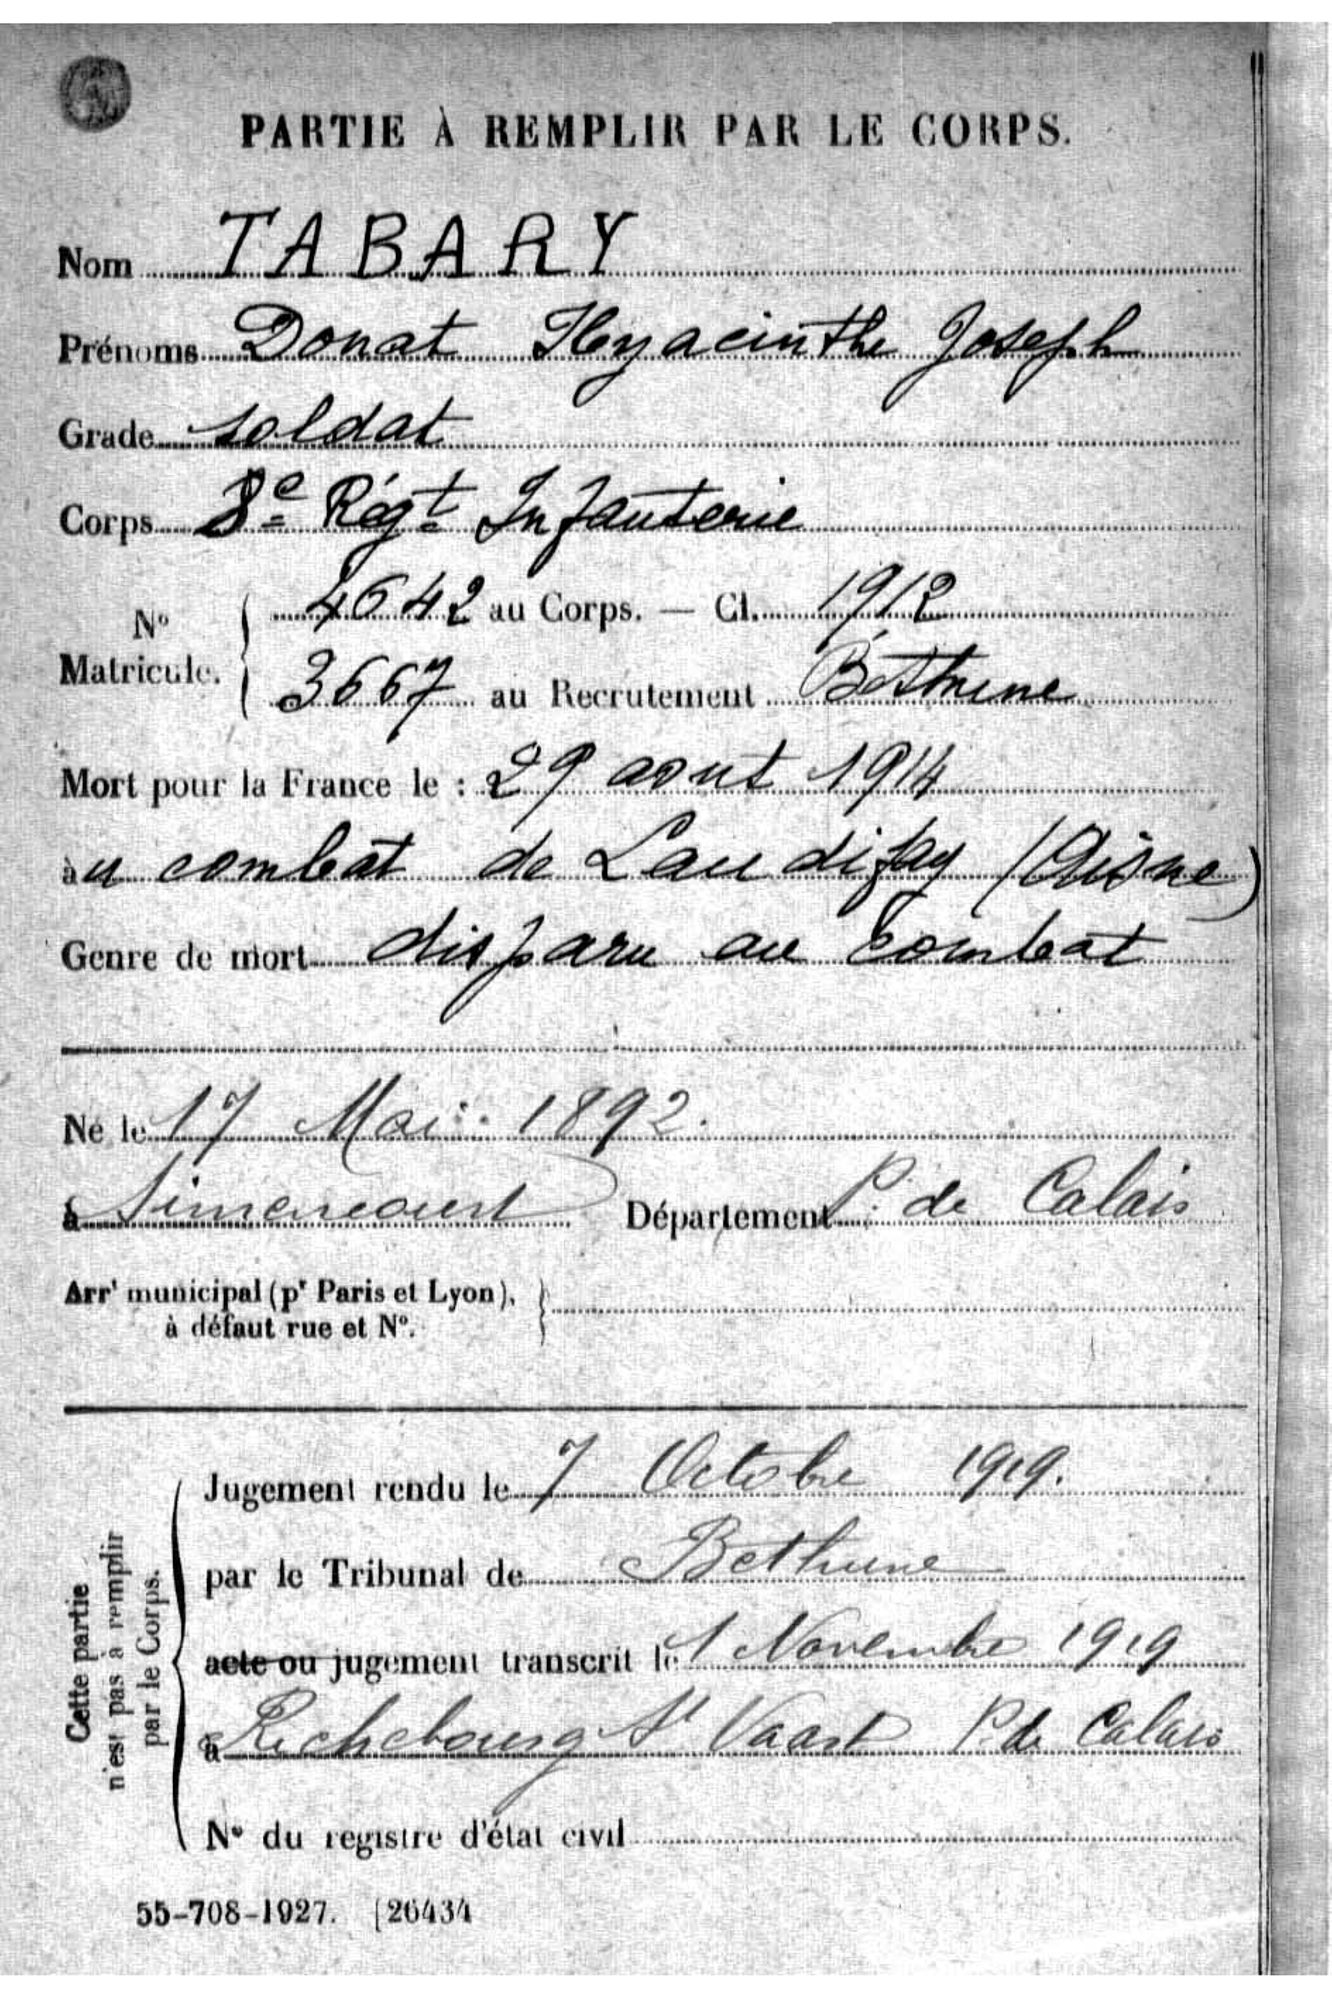 PARTIE À REMPLIR PAR LE CORPS.
Nom TABARY
Prénoms Donat Hyacinthe Joseph
Grade soldat
Corps 8e Régt Infanterie
No Matricule. 4642 au Corps. — Cl. 1912
3667 au Recrutement Béthune
Mort pour la France le : 29 aout 1914
àu combat de Laudifay (Aisne)
Genre de mort disparu au combat
Né le 17 Mai 1892.
à Simencourt Département P. de Calais
Arrt municipal (pr Paris et Lyon),
à défaut rue et No.
Cette partie
n'est pas à remplir
par le Corps.
Jugement rendu le 7 Octobre 1919.
par le Tribunal de Bethune
acte ou jugement transcrit le 1 Novembre 1919
à Richebourg St Vaast P. de Calais
No du registre d'état civil
55-708-1927. [26434